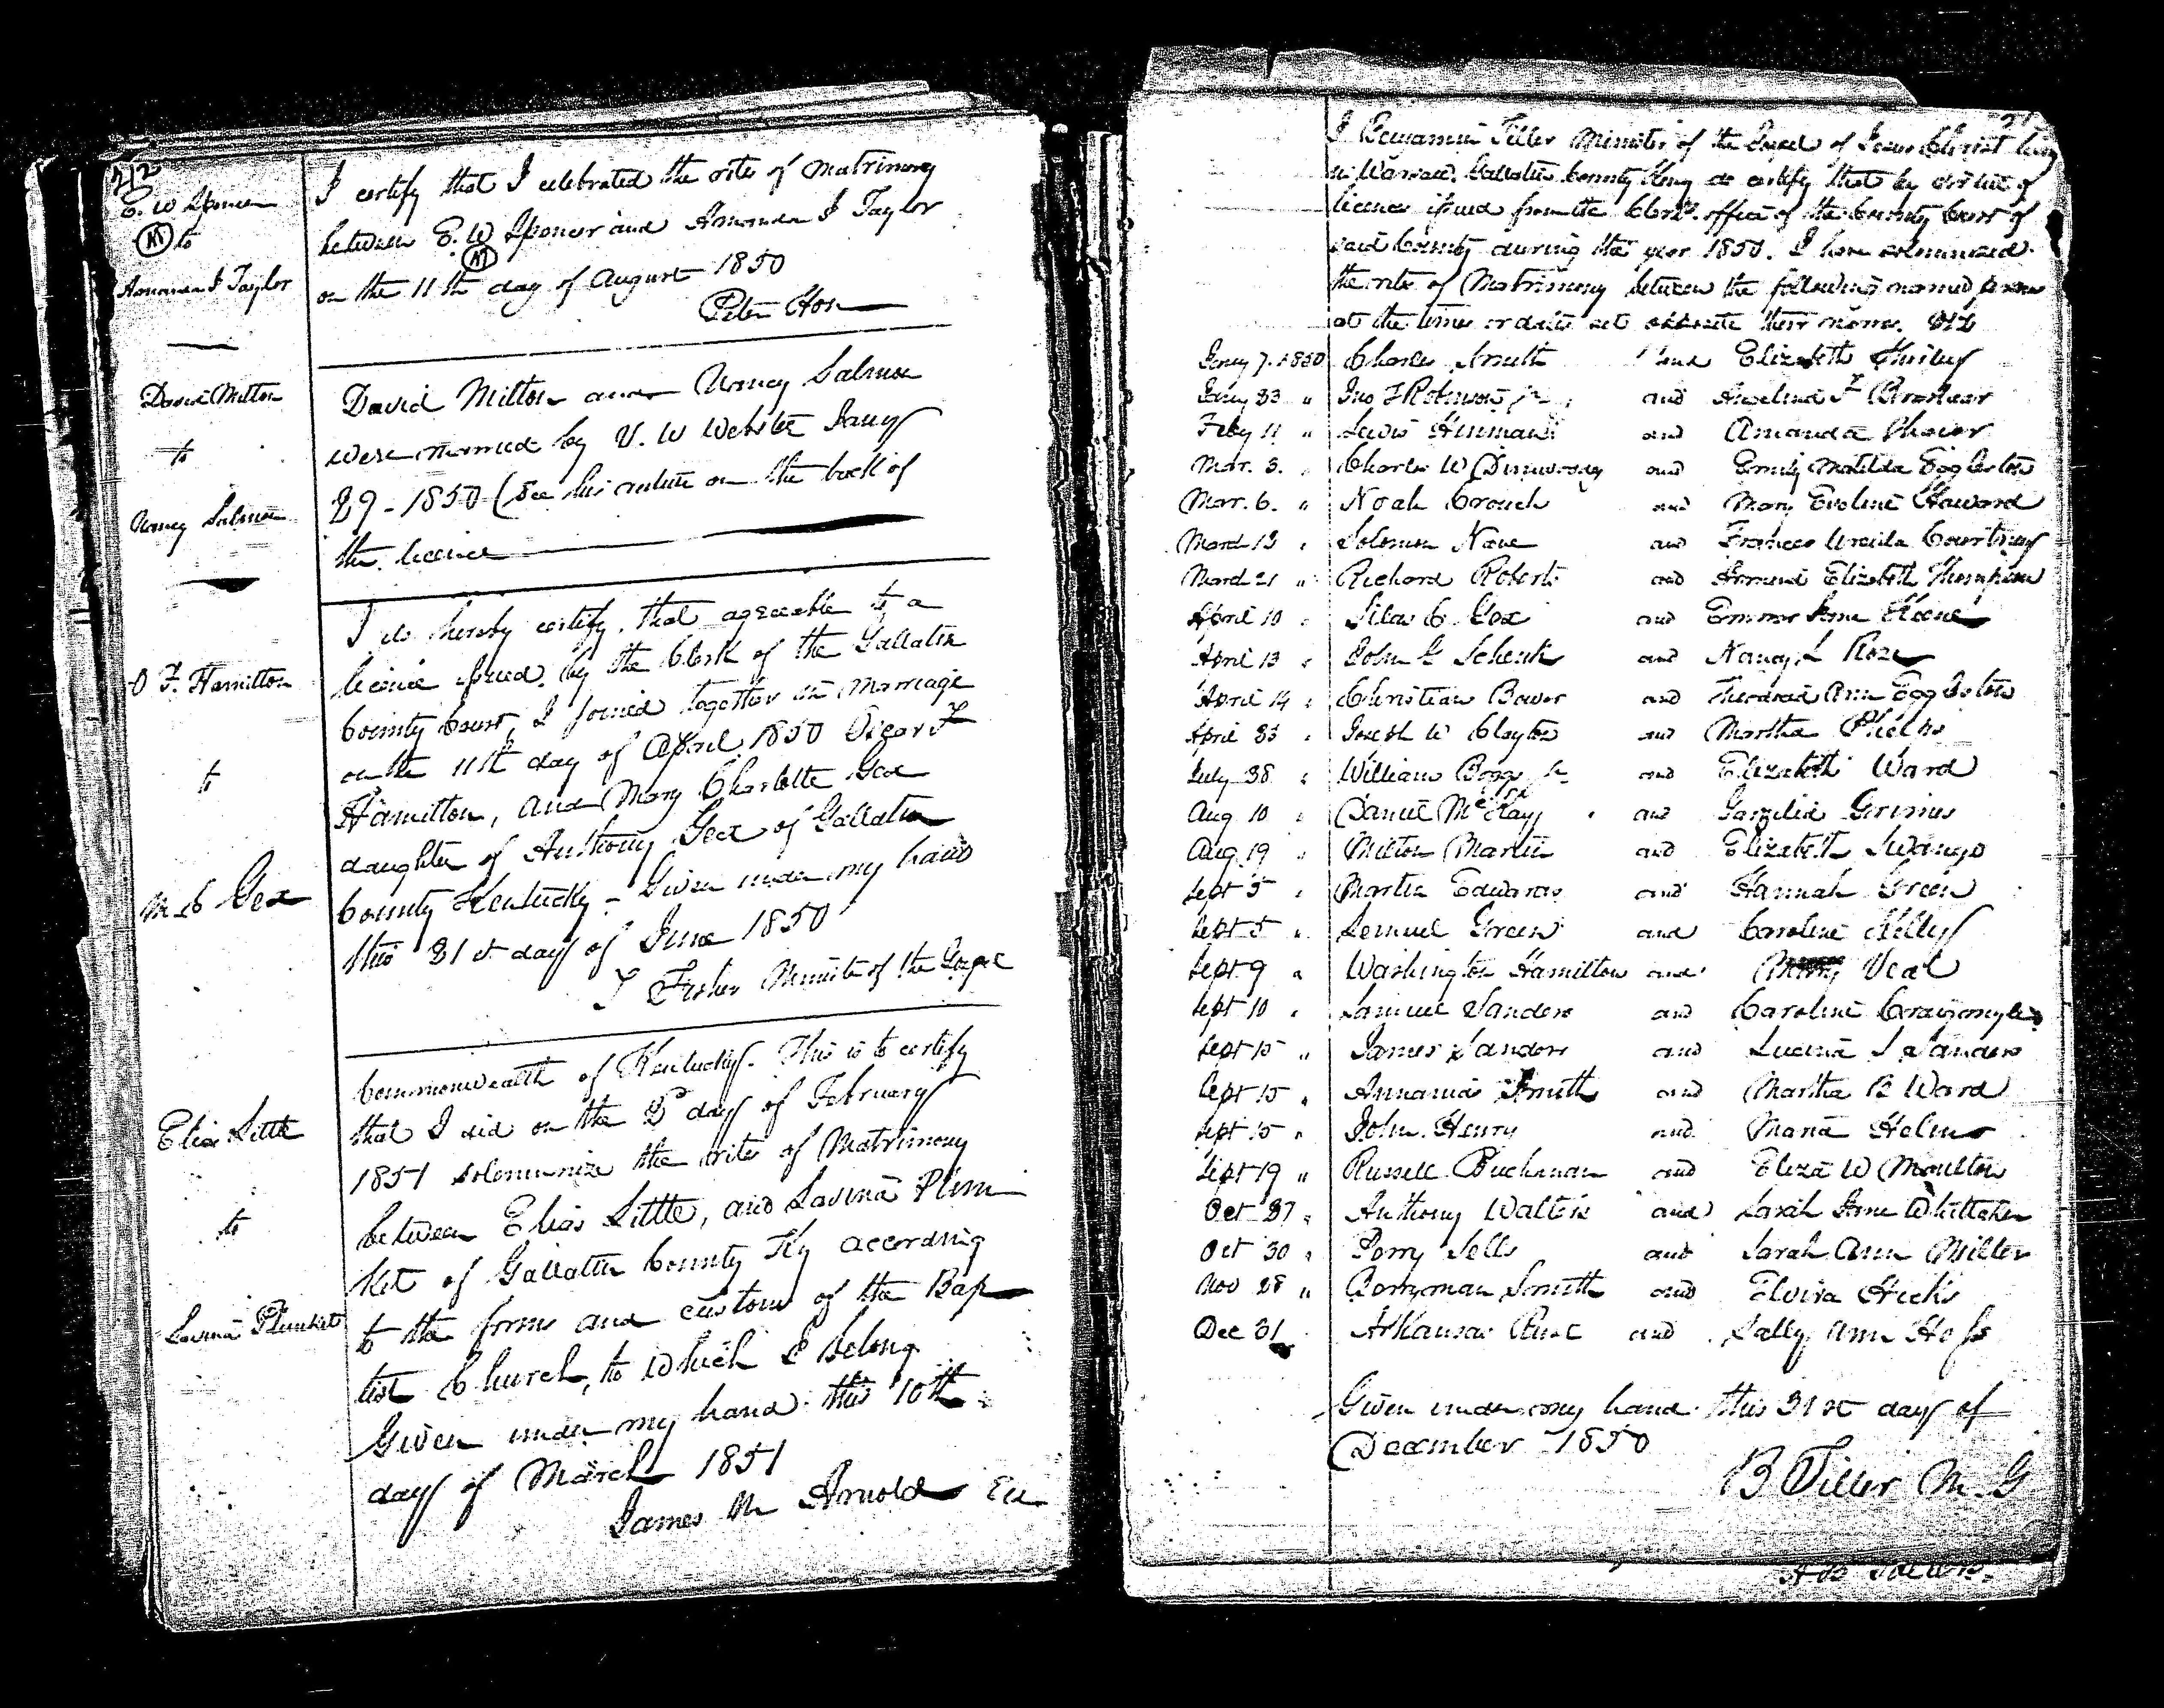 212
E. W Spencer
(M) to
Amanda J Taylor
I certify that I celebrated the rite of Matrimony
between E. W Spencer and Amanda J Taylor
(M)
on the 11th day of August 1850
Peter Hon
David Milton
to
Nancy Salmon
David Milton and Nancy Salmon
were married by V. W Webster Jany
29 - 1850 (See his return on the back of
the licence
O F. Hamilton
to
M C Gex
I do hereby certify that agreeable to a
licence issued by the Clerk of the Gallatin
County Court, I joined together in Marriage
on the 11th day of April 1850 Oscar F
Hamilton, and Mary Charlotte Gex
daughter of Anthony Gex of Gallatin
County Kentucky - Given under my hand
this 21st day of June 1850
T Fisher Minister of the Gospel
Elias Little
to
Lavina Plunket
Commonwealth of Kentucky. This is to certify
that I did on the day of February
1851 solemnize the rite of Matrimony
between Elias Little, and Lavina Plun
ket of Gallatin County Ky according
to the forms and custom of the Bap
tist Church, to which I belong
Given under my hand this 10th
day of March 1851
James M Arnold
I Benjamin Tiller Minister of the Gospel of Jesus Christ living
in Warsaw, Gallatin County Keny do certify that by virtue of
licence issued from the Clerks office of the County Court of
said County during the year 1850. I have solemnized
the rite of Matrimony between the following named persons
at the times or dates set opposite their names. Viz
Jany 7. 1850 Charles Smith and Elizabeth Shirley
Jany 23 " Jno F Robinson jr and Angelina F Brashear
Feby 11 " Lewis Hinman and Amanda
Mar. 3. " Charles W and Emily Matilda Eggleston
Mar. 6. " Noah Crouch and Mary Eveline Howard
March 13 " Solomon Nave and Frances Ursula Courtney
March 21 " Richard Roberts and Elizabeth Thompson
April 10 " Silas C Gex and Jane Keene
April 13 " John G Schenk and Nancy L Rose
April 14 " Christian Bower and Theodosia Ann Eggleston
April 23 " Joseph W Clayton and Martha Phelps
July 28 " William Bogg jr and Elizabeth Ward
Aug 10 " Daniel McKay and Grimes
Aug 19 " Milton Martin and Elizabeth Swango
Sept 5 " Martin Edwards and Hannah Green
Sept 5 " Lemuel Green and Caroline Kelly
Sept 9 " Washington Hamilton and Veal
Sept 10 " Samuel Sanders and Caroline
Sept 15 " James Sanders and Lucina J Sanders
Sept 15 " Annania Smith and Martha B Ward
Sept 15 " John Henry and Maria Helms
Sept 19 " Russell Buchanan and Eliza W Moulton
Oct 27 " Anthony Walters and Sarah Jane Whittaker
Oct 30 " Perry Sells and Sarah Ann Miller
Nov 28 " Berryman Smith and Elvira Hicks
Dec 31 Arkansas and Sally Ann
Given under my hand this 31st day of
December 1850
B Tiller M. G